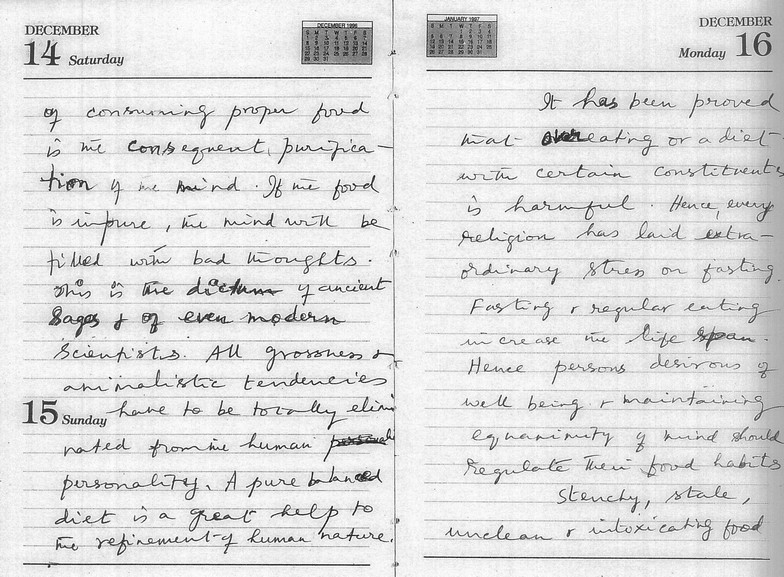 DECEMBER
14 Saturday
DECEMBER 1996
of consuming proper food
is the consequent, purifica-
tion of the mind. If the food
is impure, the mind will be
filled with bad thoughts.
This is the dictum of ancient
Sages & of even modern
Scientists. All grossness &
animalistic tendencies
15 Sunday have to be totally elimi
nated from the human
personality. A pure balanced
diet is a great help to
the refinement of human nature.
JANUARY 1997
DECEMBER
Monday 16
It has been proved
that overeating or a diet
with certain constituents
is harmful. Hence, every
religion has laid extra-
ordinary stress on fasting.
Fasting & regular eating
increase the life span.
Hence persons desirous of
well being & maintaining
equanimity of mind should
regulate their food habits
Stenchy, stale,
unclean & intoxicating food